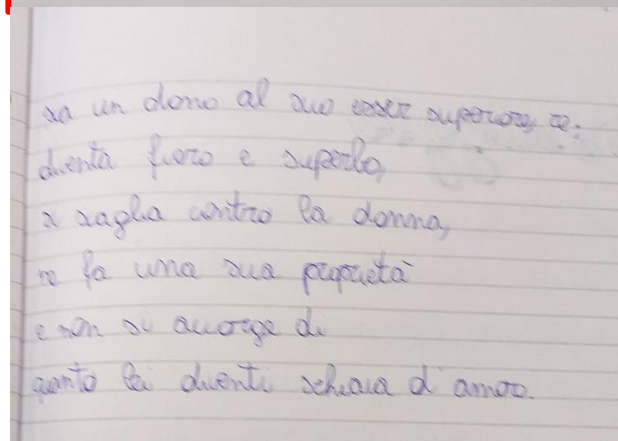 sa un dono al suo esser superiore, se:
diventa fiero e superbo,
si scaglia contro la donna,
ne fa una sua proprietà
e non si accorge di
quanto lei diventi schiava d'amore.